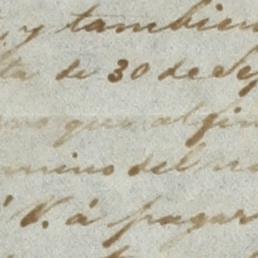 y tambien
ta de 30 de Se
mo que al fin
mino del
V. á pagar